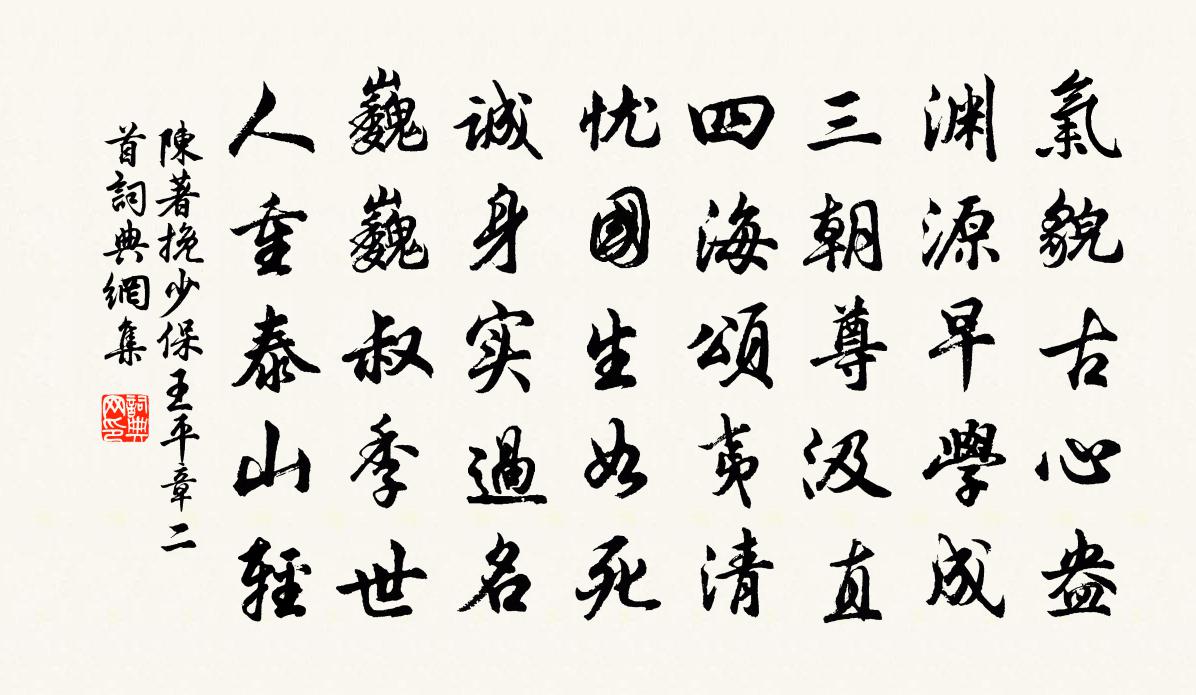 氣貌古心盎
渊源早學成
三朝尊汲直
四海頌夷清
忧國生如死
诚身实過名
巍巍叔季世
人重泰山輕
陳著挽少保王平章二
首詞典網集
詞典
网印